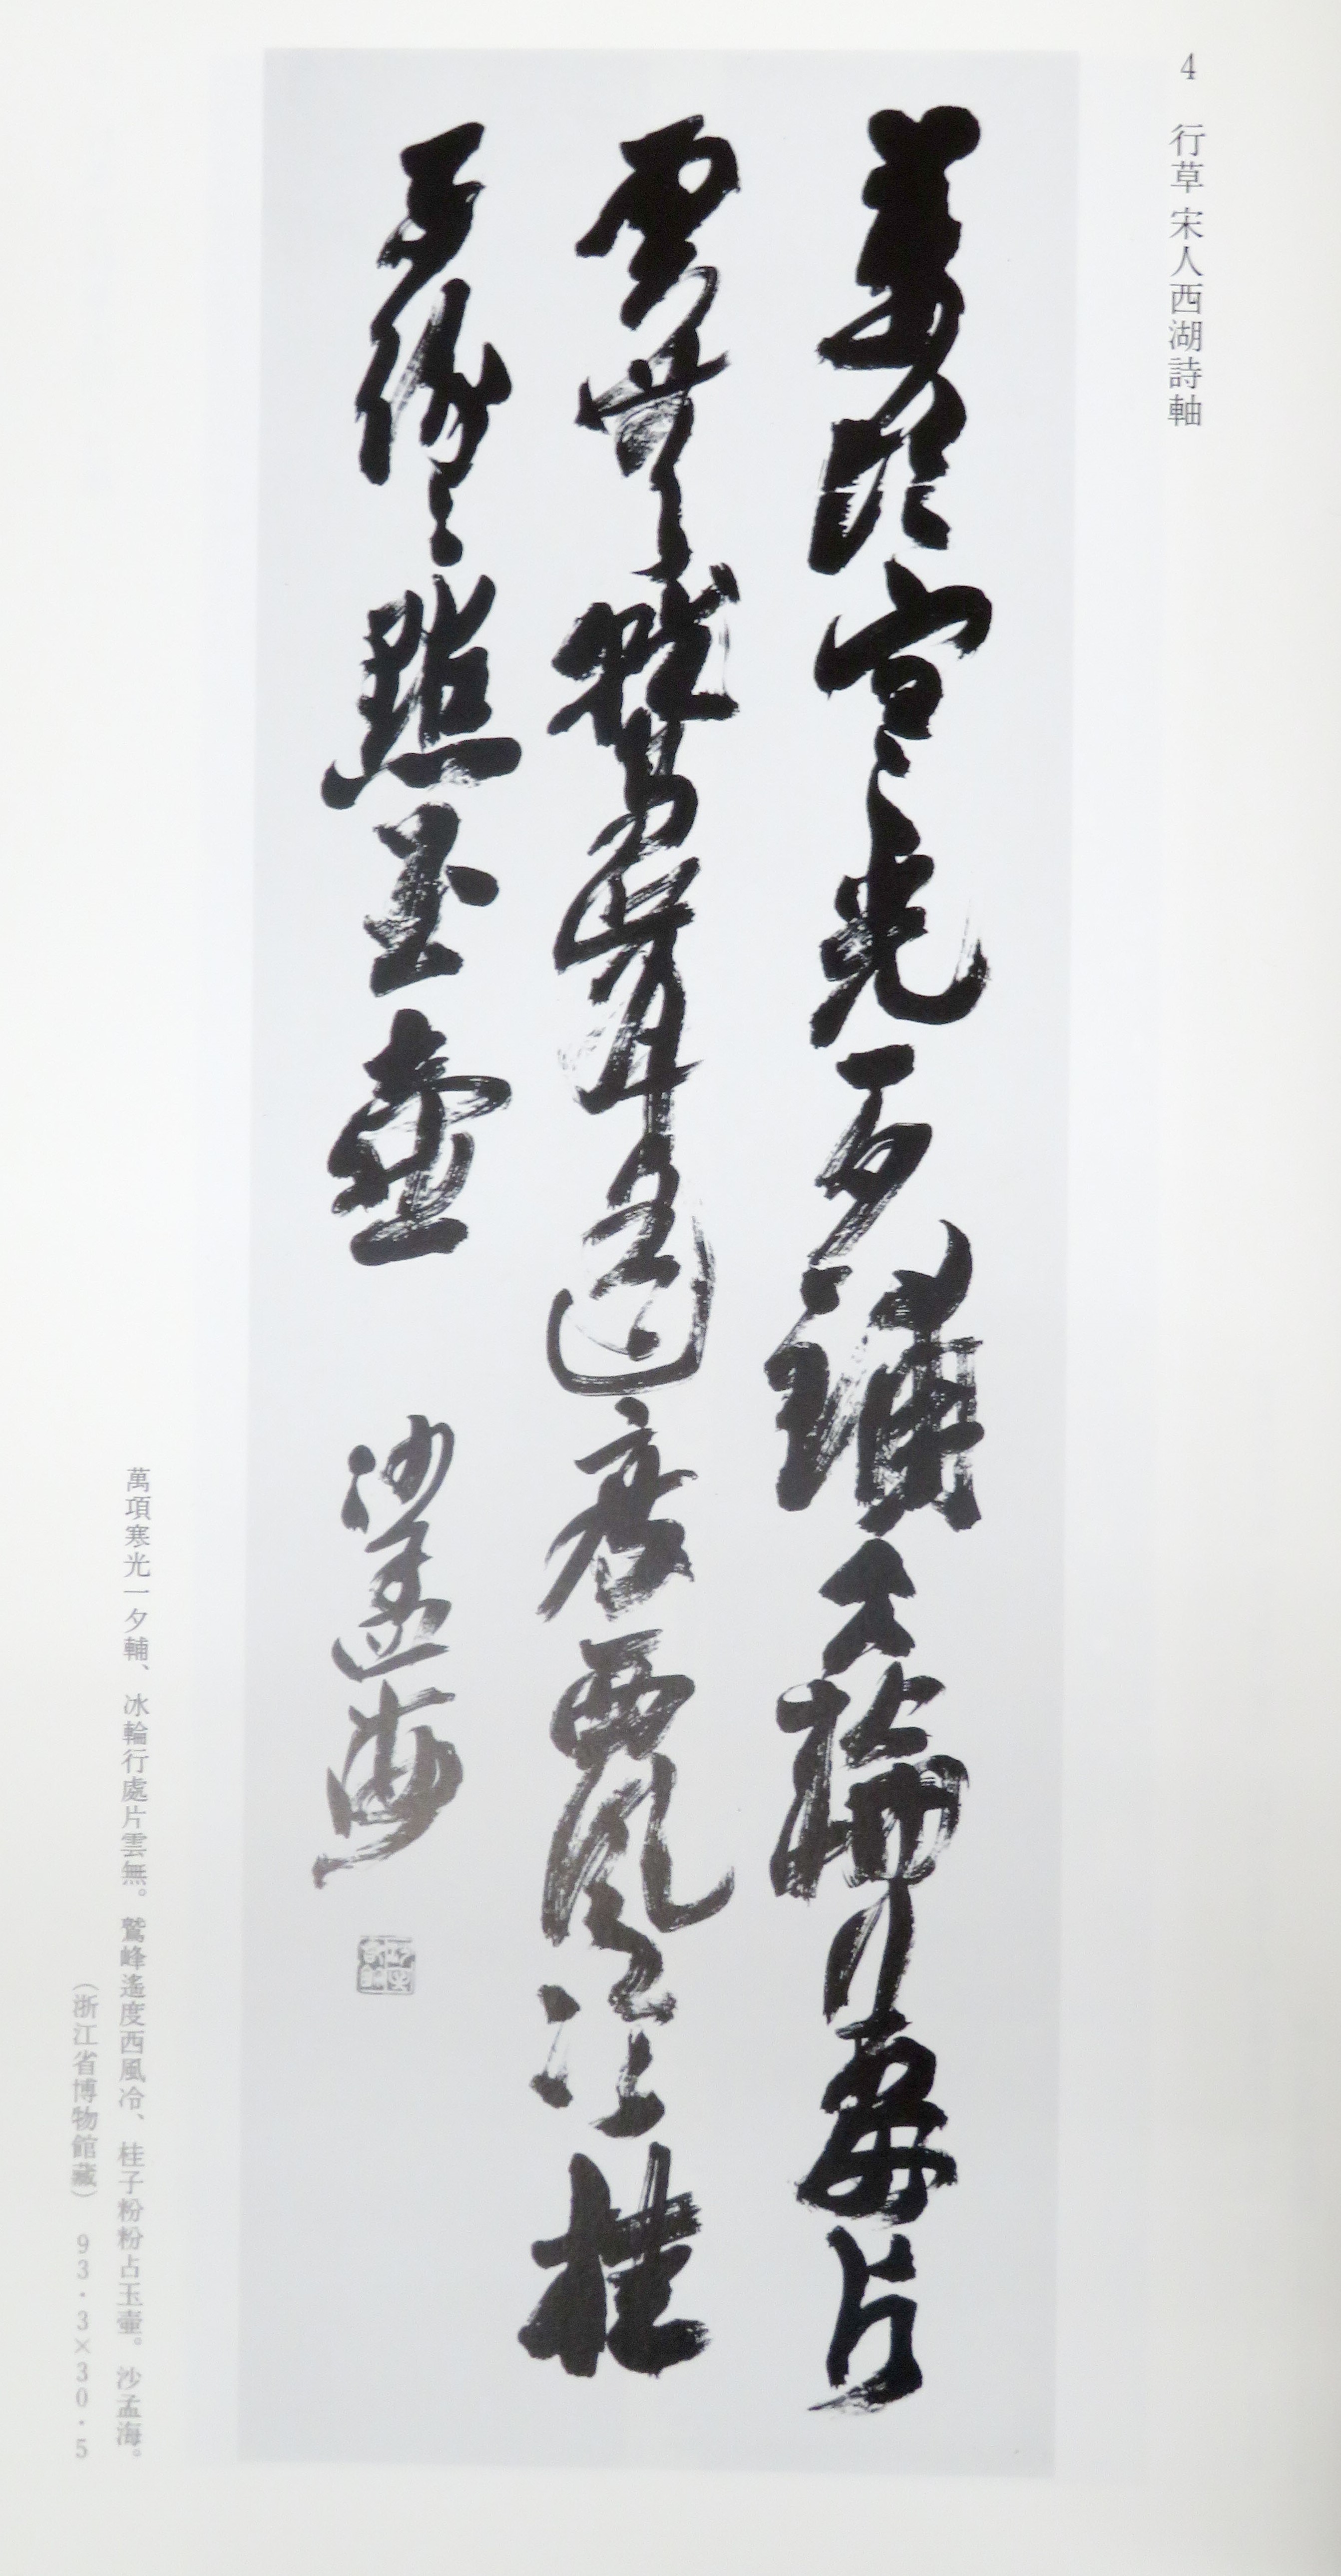 4 行草 宋人西湖詩軸
萬頃寒光一夕鋪冰輪行處片
雲無鷲峰遥度西風冷桂
子紛〻點玉壺 沙孟海
萬項寒光一夕輔、冰輪行處片雲無。鷲峰遙度西風冷、桂子粉粉占玉壷。沙孟海。
（浙江省博物館藏） 93・3×30・5